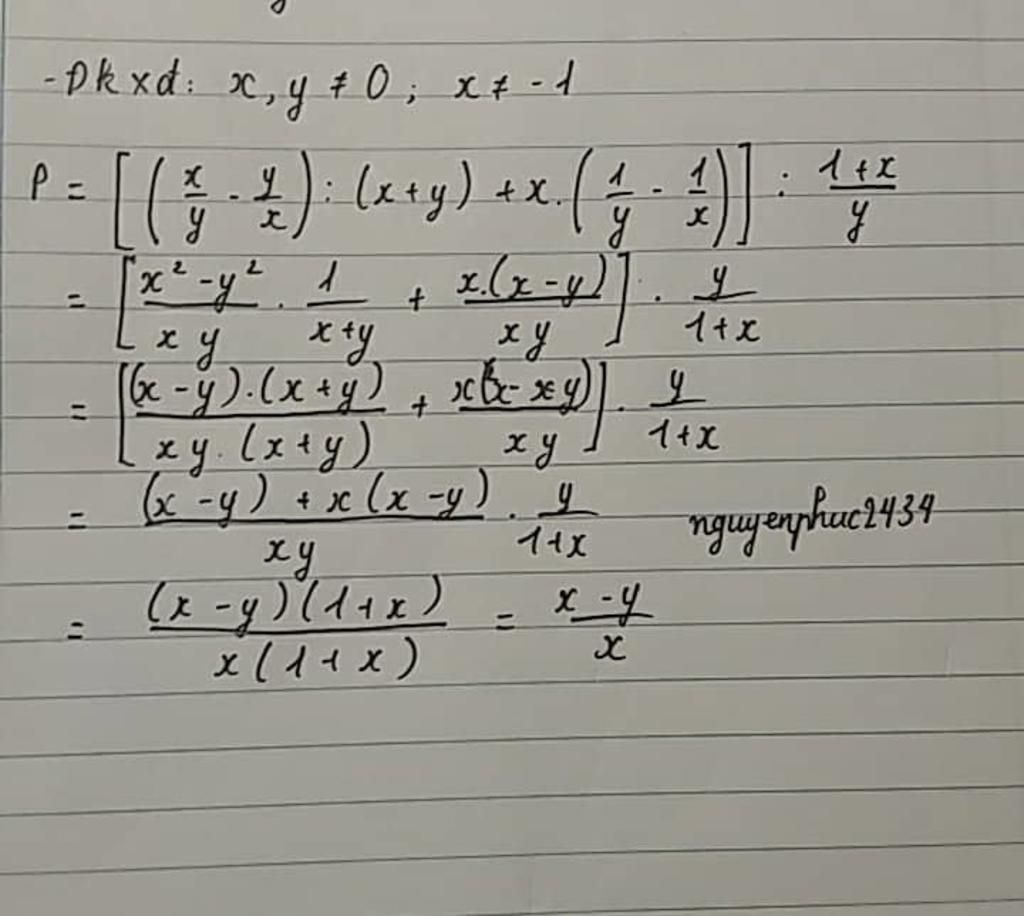 -Đkxđ: x, y ≠ 0 ; x ≠ -1
P = [(x/y - y/x) : (x+y) + x.(1/y - 1/x)] : (1+x)/y
= [(x² - y²)/(xy) . 1/(x+y) + x.(x-y)/(xy)] . y/(1+x)
= [(x-y).(x+y)/(xy.(x+y)) + x(x-y)/(xy)] . y/(1+x)
= ((x-y) + x(x-y))/(xy) . y/(1+x) nguyenphuc2434
= (x-y)(1+x)/(x(1+x)) = (x-y)/x